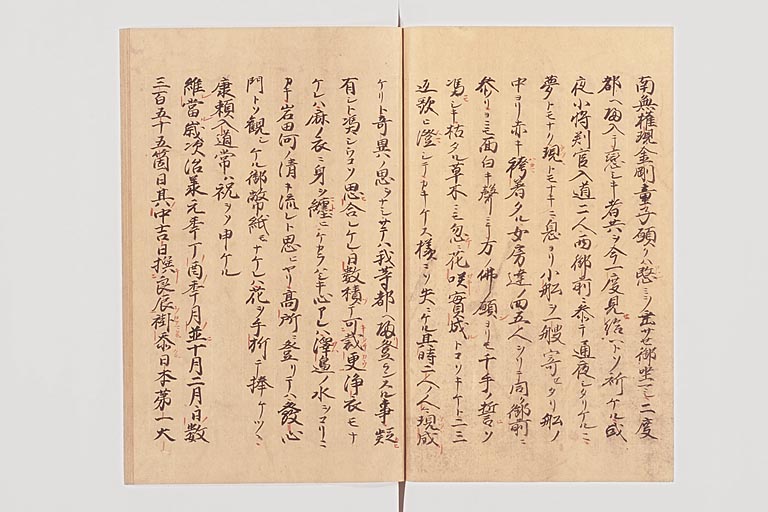 南無権現金剛童子願ハ愍ミヲ垂サセ御坐シテ二度
都ヘ皈入テ恋シキ者共ヲ今一度見給ヘトソ祈ケル或
夜小将判官入道二人両御前ニ参テ通夜シタリケルニ
夢トモナク現トモナキニ息ヨリ小船ヲ一艘寄セタリ船ノ
中ヨリ赤キ袴着タル女房達四五人アカリテ両御前ニ
参リヨニモ面白キ声ニテ万ノ仏ノ願ヨリモ千手ノ誓ソ
馮シキ枯タル草木モ忽ニ花咲実成トコソキケト二三
返歌ヒ澄シテカキケス様ニソ失ニケル其時二人ノ人ニ現成
ケリト奇異ノ思ヲナシサテハ我等都ヘ皈登ランスル事疑
有シト馮シウコソ思合レケレ日数積テ可裁更浄衣モナ
ケレハ麻ノ衣ヲ身ニ纏ニケカラハシキ心アレハ沢辺ノ水ヲコリニ
カキ岩田河ノ清キ流レト思ヒヤリ高所ニ登リテハ発心
門トソ観シケル御幣紙モナケレハ花ヲ手折テ捧ケツヽ
康頼入道常ハ祝ヲソ申ケル
維当歳次治承元年丁酉年月並十月二月日数
三百五十五箇日其中吉日撰良辰掛忝日本第一大